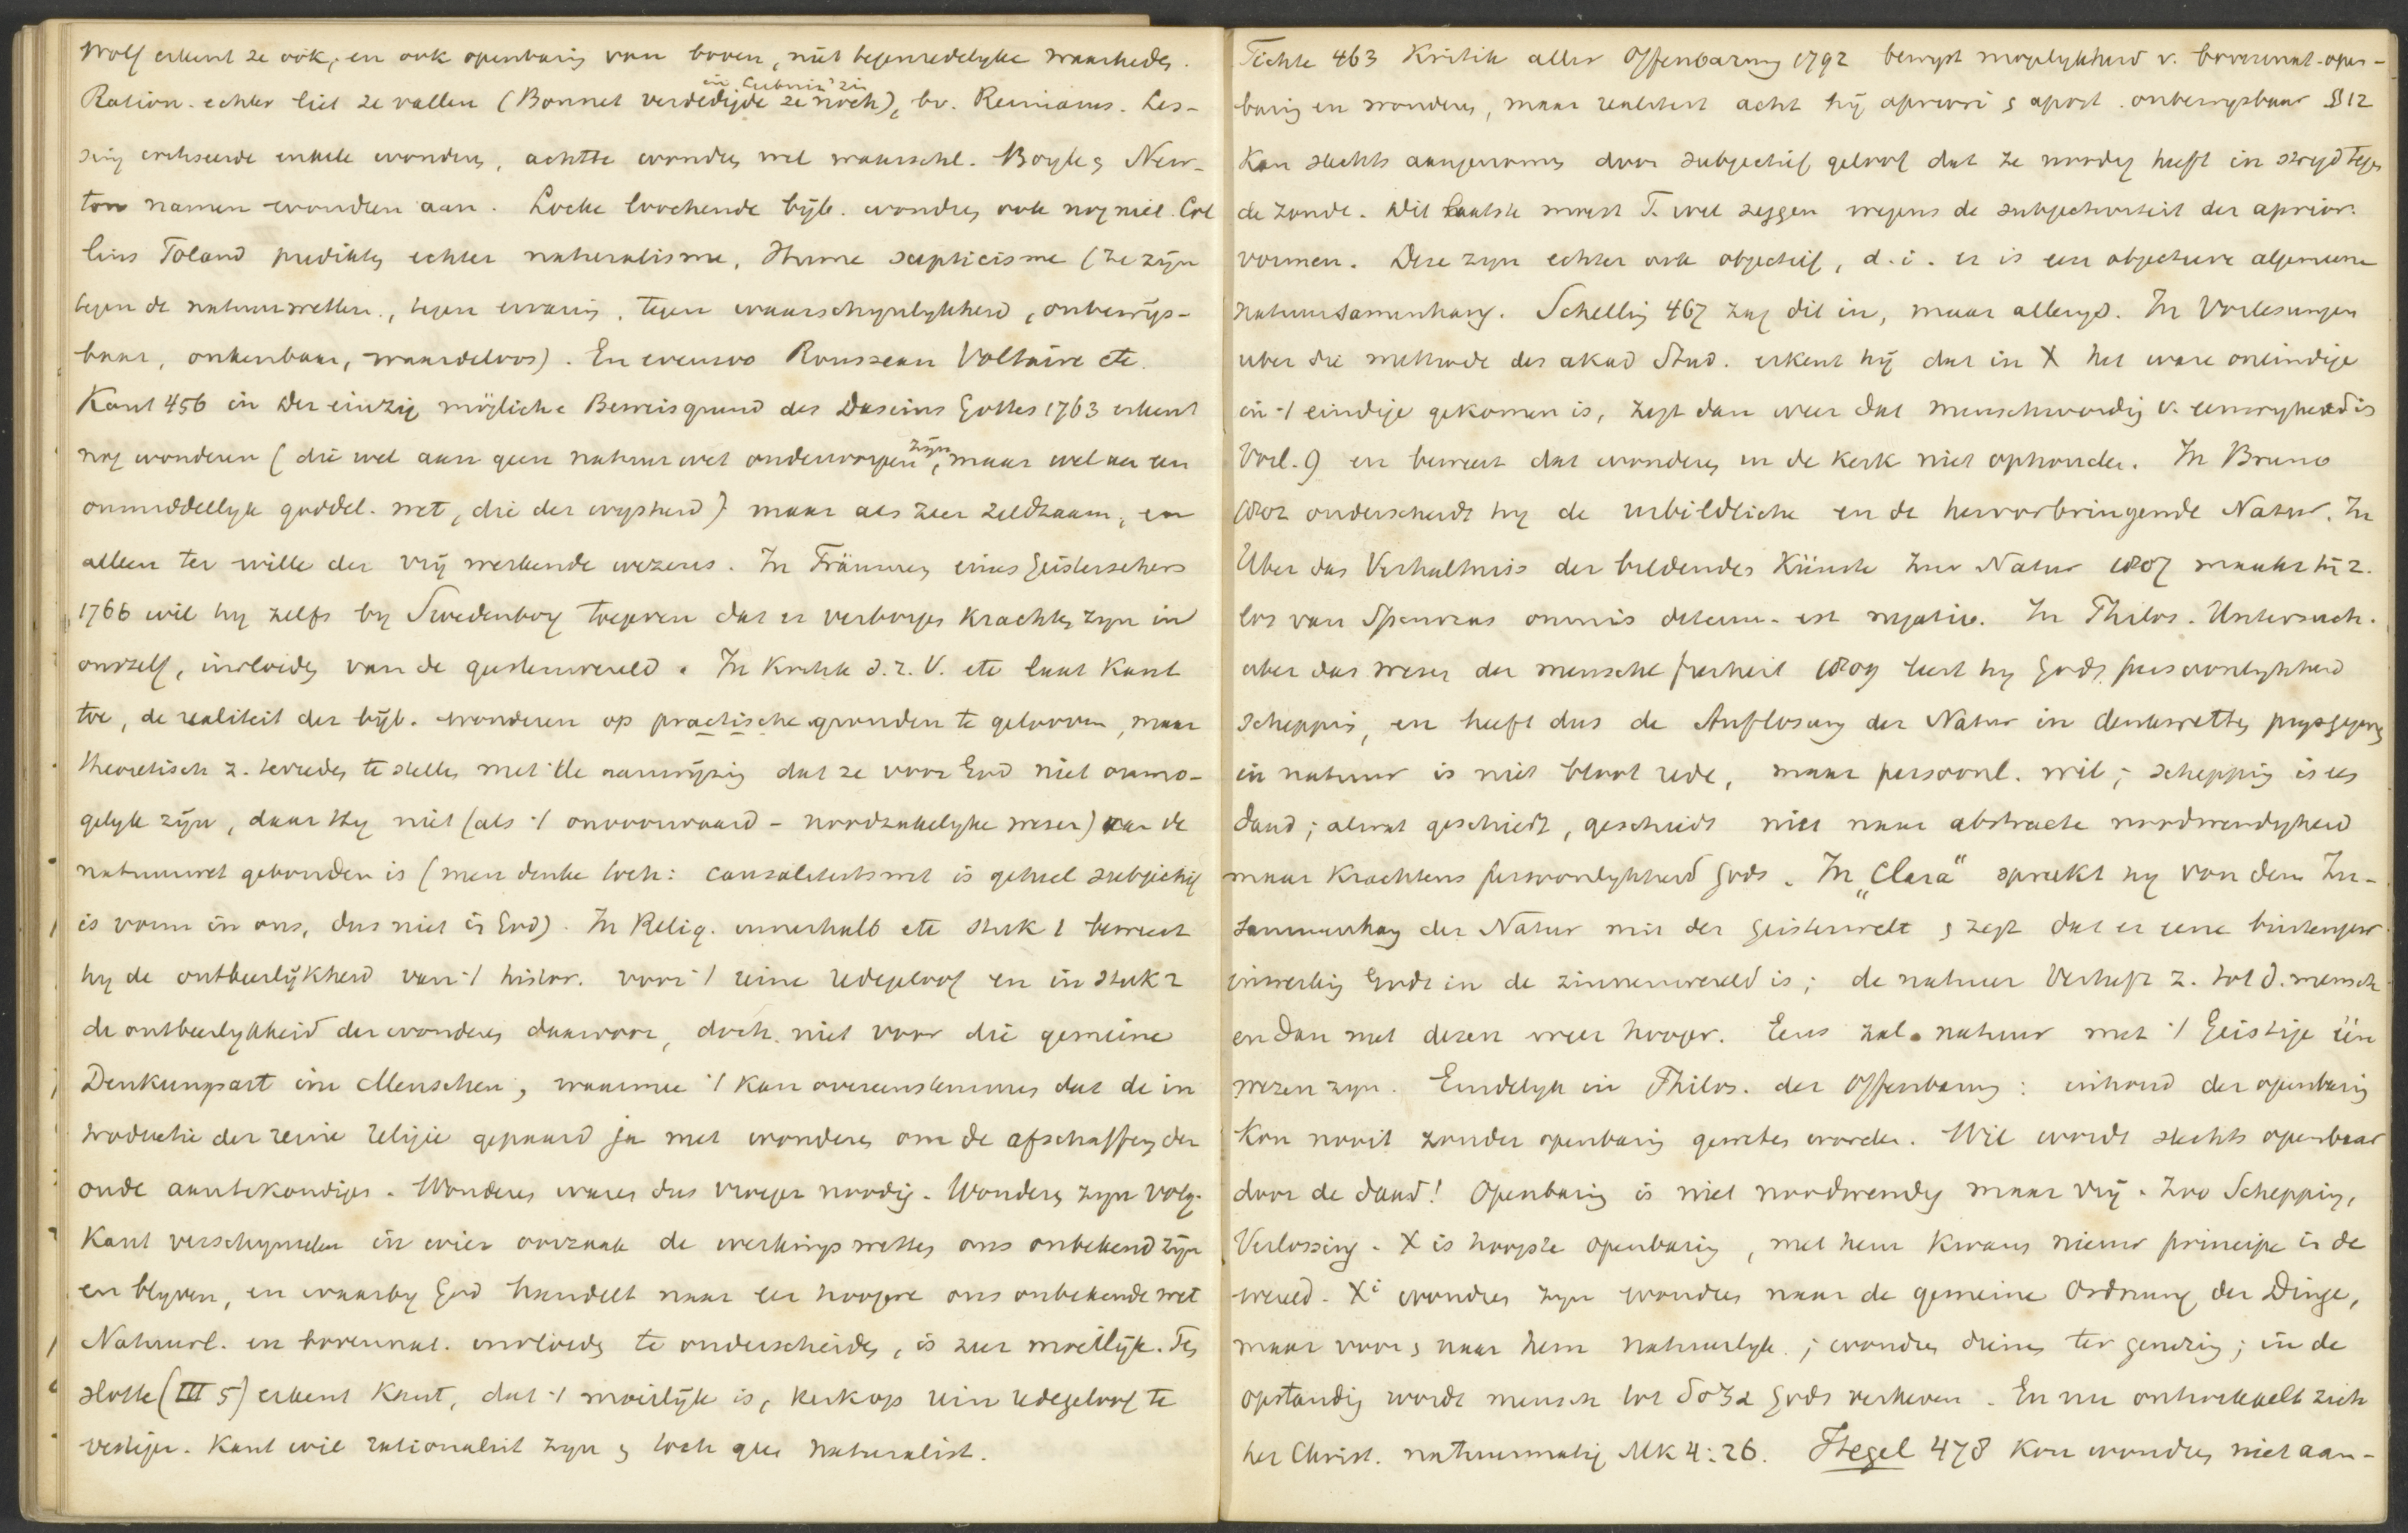 Wolf erkent ze ook, en ook openbaring van boven, niet tegenredelyke waarheden.
in Leibniz' zin
Ration. echter liet ze vallen (Bonnet verdedigde ze noch), bv. Reimarus. Les-
sing critiseerde enkele wonderen, achtte wonderen wel waarschl. Boyle & New-
ton namen wonderen aan. Locke loochende bijb. wonderen ook nog niet. Col
lins Toland predikten echter naturalisme, Hume scepticisme (ze zijn
tegen de natuurwetten, tegen ervaring, tegen waarschynlykheid, onbewys-
baar, onkenbaar, waardeloos). En evenzoo Rousseau Voltaire etc.
Kant 456 in Der einzig mögliche Beweisgrund des Daseins Gottes 1763 erkent
nog wonderen (die wel aan geen natuurwet onderworpen zijn, maar wel aan een
onmiddellyke goddel. wet, die der wysheid) maar als zeer zeldzaam, en
alleen ter wille der vrij werkende wezens. In Träumen eines Geistersehers
1766 wil hy zelfs by Swedenborg toegeven dat er verborgen krachten zyn in
onszelf, invloeden van de geestenwereld. In Kritik d. r. V. etc laat Kant
toe, de realiteit der bijb. wonderen op practische gronden te gelooven, maar
theoretisch z. tevreden te stellen met de aanwijzing dat ze voor God niet onmo-
gelyk zijn, daar Hy niet (als 't onvoorwaard - noodzakelyke wezen) aan de
natuurwet gebonden is (men denke toch: causaliteitswet is geheel subjectief
is vorm in ons, dus niet in God). In Relig. innerhalb etc stuk 1 beweert
hy de ontbeerlijkheid van 't histor. voor 't reine redegeloof en in stuk 2
de ontbeerlykheid der wonderen daarvoor, doch niet voor die gemeine
Denkungsart im Menschen, waarmee 't kan overeenstemmen dat de in
troductie der reine religie gepaard ga met wonderen om de afschaffing der
oude aantekondigen. Wonderen waren dus vroeger noodig. Wonderen zyn volg.
Kant verschynselen in wier oorzaak de werkingswetten ons onbekend zijn
en blyven, en waarby God handelt naar een hoogere ons onbekende wet
Natuurl. en bovennat. invloeden te onderscheiden, is zeer moeilijk. Ten
slotte (III 5) erkent Kant, dat 't moeilijk is, kerk op rein redegeloof te
vestigen. Kant wil rationalist zyn & toch geen naturalist.
Fichte 463 Kritik aller Offenbarung 1792 bewyst mogelykheid v. bovennat. open-
baring en wonderen, maar realiteit acht hij apriori & apost. onbewysbaar §12
Kan slechts aangenomen door subjectief geloof dat ze noodig heeft in strijd tegen
de zonde. Dit laatste moest F. wel zeggen wegens de subjectiviteit der aprior.
vormen. Deze zyn echter ook objectief, d. i. er is een objectieve algemeene
natuursamenhang. Schelling 467 zag dit in, maar In Vorlesungen
uber die methode des akad Stud. erkent hij dat in X het ware oneindige
in 't eindige gekomen is, zegt dan weer dat menschwording v. eeuwigheid is
Vorl. 9) en beweert dat wonderen in de kerk niet ophouden. In Bruno
1802 onderscheidt hy de urbildliche en de hervorbringende Natur. In
Uber das Verhaltniss der bildenden Künste zur Natur 1807 maakt hij z.
los van Spinozas omnis determ. est negatio. In Philos. Untersuch.
uber das wesen der menschl freiheit 1809 leert hy Gods persoonlykheid
schepping, en heeft dus de Auflosung der Natur in denkwetten prysgegeven
in natuur is niet bloot rede, maar persoonl. wil; schepping is een
daad; alwat geschiedt, geschiedt niet naar abstracte noodwendigheid
maar krachtens persoonlykheid Gods. In „Clara“ spreekt hy van den Zu-
sammenhang der Natur mit der Geisterwelt & zegt dat er eene buitengew
inwerking Gods in de zinnenwereld is; de natuur verheft z. tot d. mensch
en dan met dezen weer hooger. Eens zal natuur met 't Geistige één
wezen zyn. Eindelyk in Philos. der Offenbarung: inhoud der openbaring
kon nooit zonder openbaring geweten worden. Wil wordt slechts openbaar
door de daad! Openbaring is niet noodwendig maar vrij. Zoo Schepping,
Verlossing. X is hoogste openbaring, met hem kwam nieuw principe in de
wereld. Xⁱ wonderen zyn wonderen naar de gemeine Ordnung der Dinge,
maar voor & naar hem natuurlyk; wonderen dienen ter genezing; in de
opstanding wordt mensch tot δοξα Gods verheven. En nu ontwikkelt zich
het Christ. natuurmatig Mk 4:26. Hegel 478 kon wonderen niet aan-